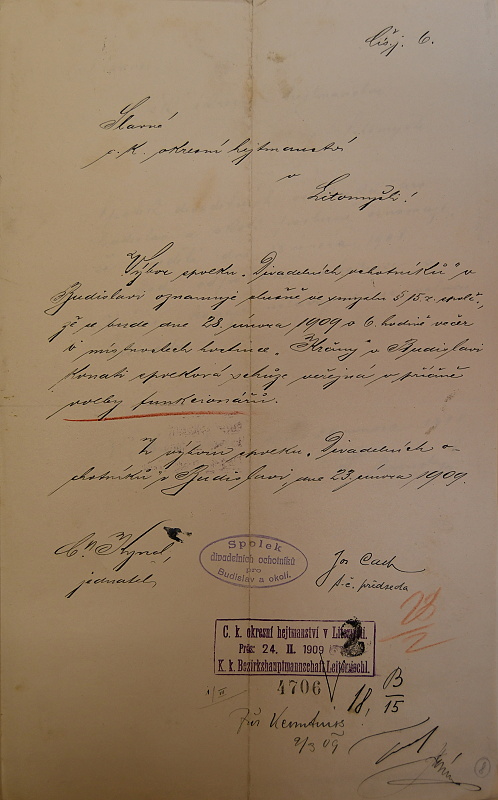 Čís. j. 6.
Slavné
c. k. okresní hejtmanství
v
Litomyšli!
Výbor spolku „Divadelních ochotníků" v
Budislavi oznamuje slušně ve smyslu § 15 z. spolč.,
že se bude dne 28. února 1909 o 6. hodině večer
v místnostech hostince „Krčmy" v Budislavi
konati spolková schůze veřejná v příčině
volby funkcionářů.
Z výboru spolku „Divadelních o-
chotníků" v Budislavi, dne 23. února 1909.
jednatel,
Jos Cach
t. č. předseda
Spolek
divadelních ochotníků
pro
Budislav a okolí.
28/2
C. k. okresní hejtmanství v Litomyšli.
Präs: 24. II. 1909
K. k. Bezirkshauptmannschaft Leitomischl.
4706
18, B/15
1/III
Zur Kenntnis
2/3 09